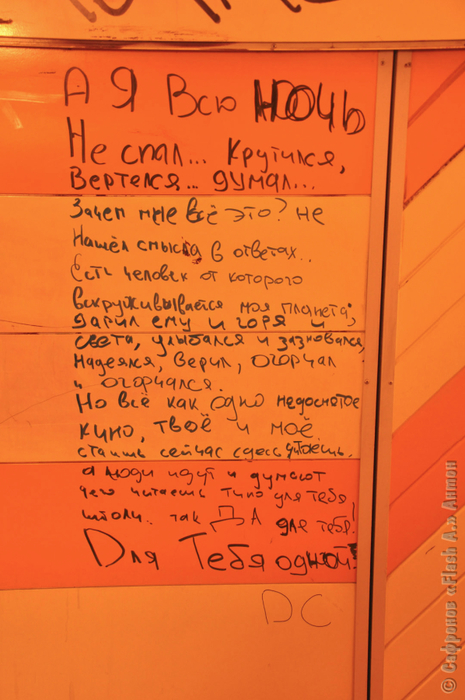 А Я Всю НОЧЬ
Не спал... Крутился,
Вертелся... думал...
Зачем мне всё это? не
Нашёл смысла в ответах..
Есть человек от которого
вскруживывается моя планета;
дарил ему и горя и
света, улыбался и зазновался,
надеялся, верил, огорчал
и огорчался.
Но всё как одно недоснятое
кино, твоё и моё
стоишь сейчас здесь
а люди идут и думают
чего читаешь типо для тебя
штоли. так ДА для тебя!
Для Тебя одной!
DC
© Сафронов «Flash A.» Антон